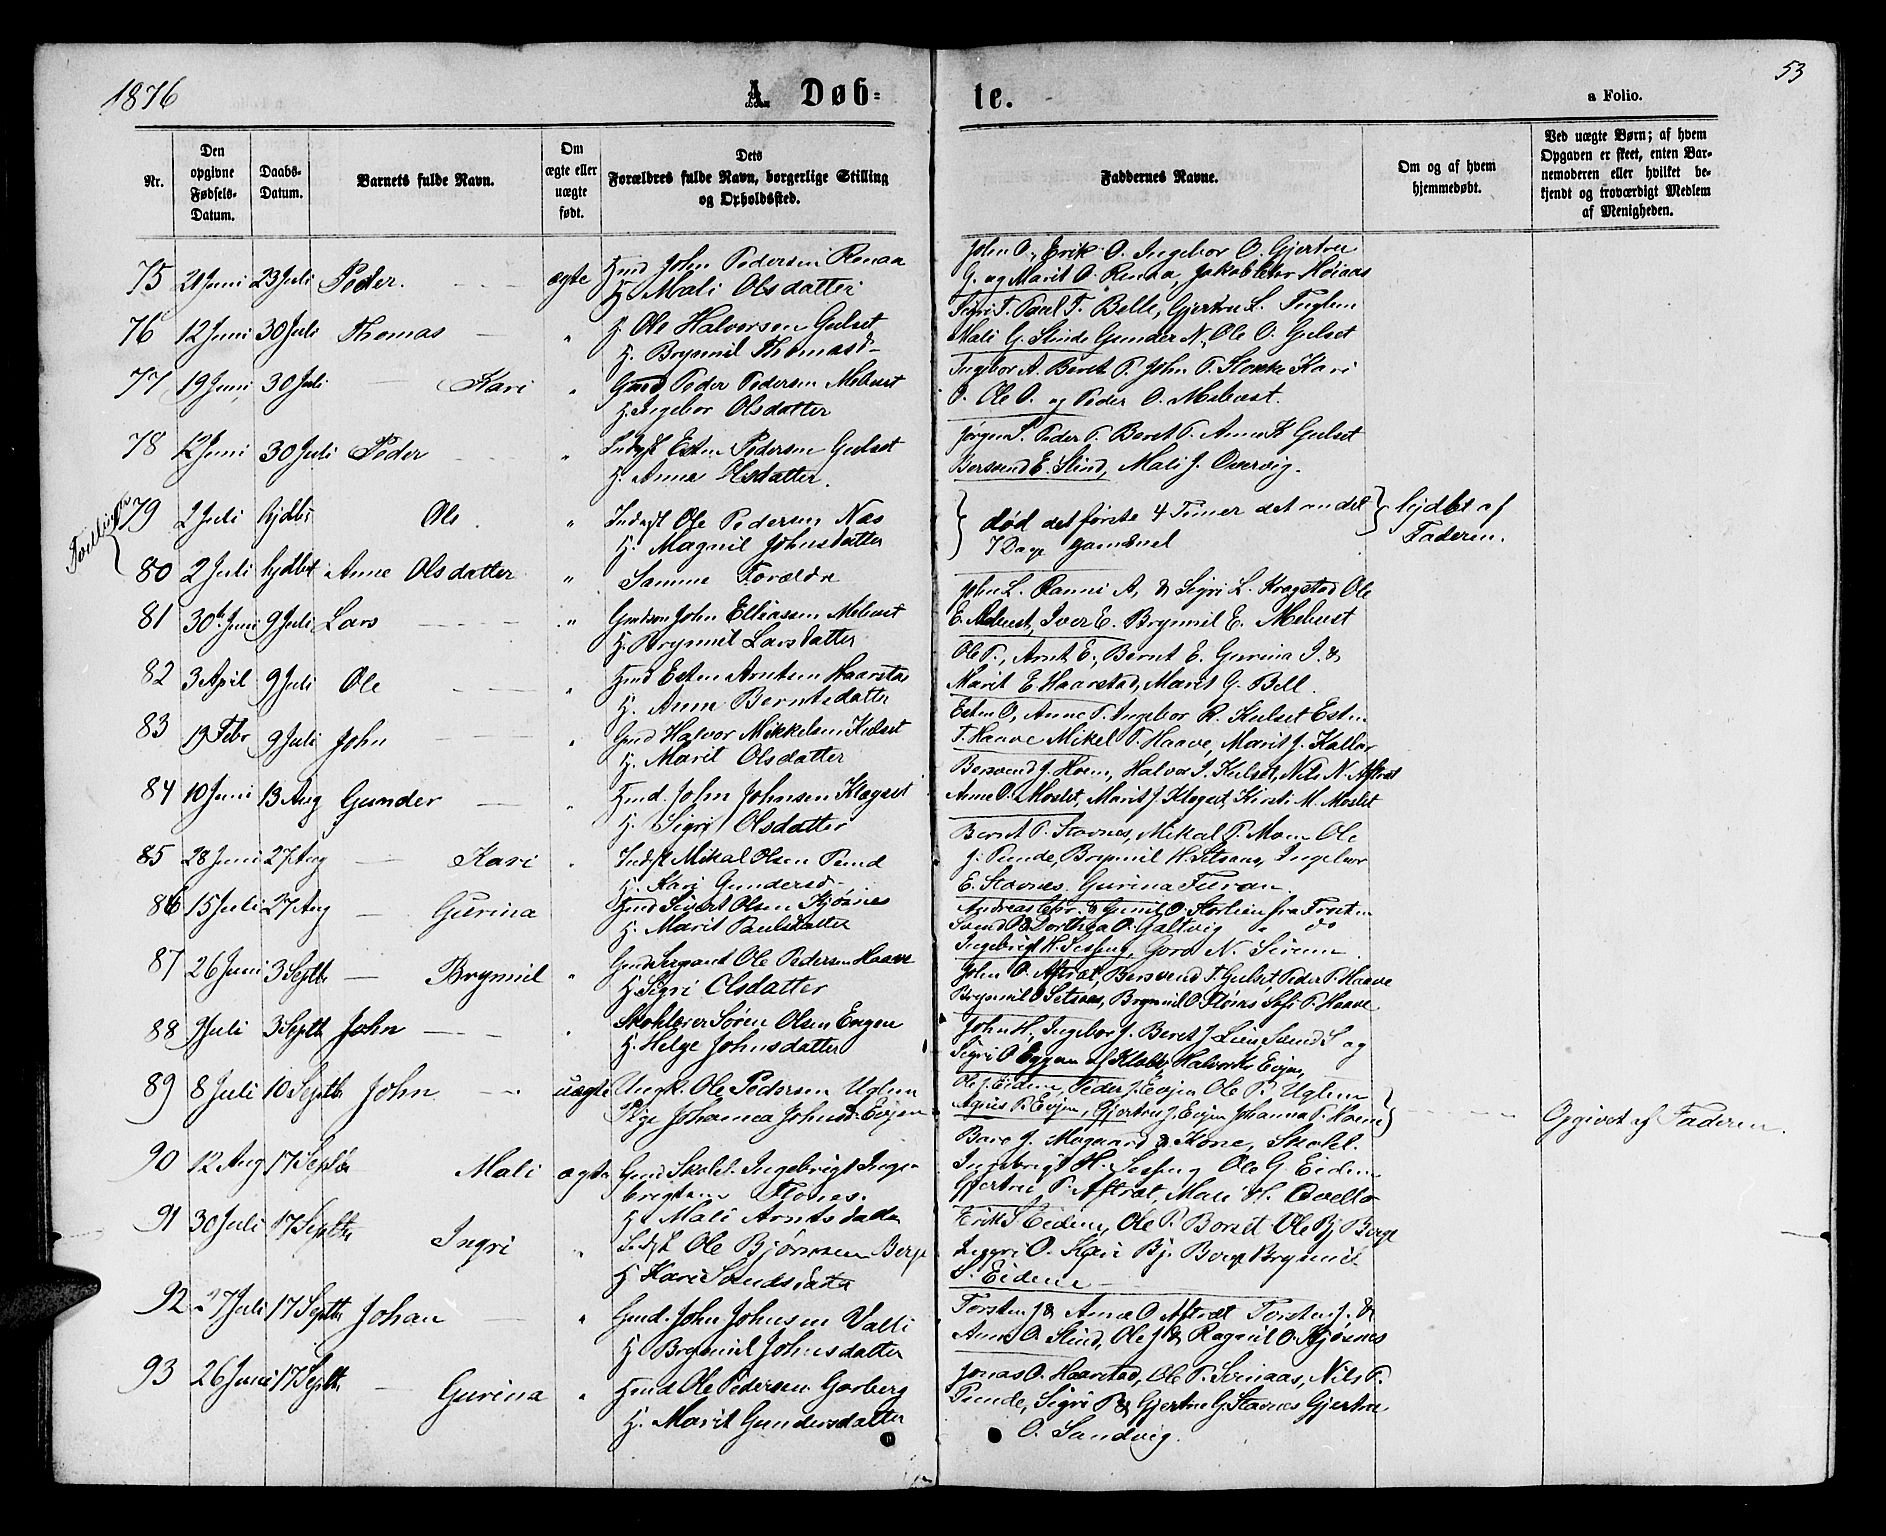 1876
A. Døb-
te.
a Folio.
53
Nr.
Den opgivne Fødsels-Datum.
Daabs-Datum.
Barnets fulde Navn.
Om ægte eller uægte født.
Dets Forældres fulde Navn, borgerlige Stilling og Opholdssted.
Faddernes Navne.
Om og af hvem hjemmedøbt.
Ved uægte Børn; af hvem Opgaven er skeet, enten Barnemoderen eller hvilket bekjendt og troværdigt Medlem af Menigheden.
75 21 Juni 23 Juli Peder. ægte Gmd John Pedersen Renaa
H. Mali Olsdatter
John O., Erik O. Ingebor O. Gjertru
G. og Marit O. Renaa, Jakob
76 12 Juni 30 Juli Thomas " Ole Halvorsen Gulset
H. Brynnil Thomasd
Sigri T. Paul T. Belle, Gjertru L. Fuglem
Mali G. Slinde Gunder N. Ole O. Gulset
77 19 Juni 30 Juli Kari " Gmd Peder Pedersen Mebust
H. Ingebor Olsdatter
Ingebor A. Beret P. John P. Stokke Kari
P. Ole O. og Peder O. Mebust.
78 12 Juni 30 Juli Peder " Indst Esten Pedersen Gulset
H. Anne Olsdatter.
Jørgen S. Peder P. Beret P. Anne K Gulset
Bersvend E. Slind, Mali J. Overvig.
Tvillinger
79 2 Juli hjdbt Ole " Indst Ole Pedersen Næs
H. Magnil Johnsdatter
død det første 4 Timer det andet
7 Dage gammel
hjdbt af
Faderen.
80 2 Juli hjdbt Anne Olsdatter " Samme Forældre
81 30te Juni 9 Juli Lars " John Elliassen Mebust
H. Brynnil Larsdatter
John L. Rønni A, & Sigri L. Kragstad Ole
E. Mebust, Iver E. Brynnil E. Mebust
82 3 April 9 Juli Ole " Gmd Esten Arntsen Haarstad
H. Anne Berntsdatter
Ole P., Arnt E., Bernt E. Gurina I. &
Marit E Haarstad, Marit G. Bell.
83 19 Febr 9 Juli John " Gmd Halvor Mikkelsen Kulset
H. Marit Olsdatter
Esten O, Anne P. Ingebor R. Kulset Esten
T. Haave Mikel T. Haave, Marit J. Kallar
84 10 Juni 13 Aug Gunder " Gmd. John Johnsen Klegset
H. Sigri Olsdatter
Bersvend J. Hoem, Halvor I. Kulset, Nils N. Aftret
Anne O. Moslet, Marit J. Klegset, Kirsti M. Moslet
85 28 Juni 27 Aug Kari " Indst Mikal Olsen Punde
H. Kari Gundersd
Bernt P. Stavnes, Mikal P. Moen Ole
J. Punde, Brynnil H. Setsaas, Ingebor
E. Stavnes. Gurina Furan.
86 15 Juli 27 Aug Gurina Gmd Sivert Olsen Kjøsnes
H. Marit Paulsdatter
Andreas Chr. & Gunil O. Stortien fra
Svend O & Dorthea O. Galtvig " do
Ingebrigt H. Sesseng, Goro N. Sirum
87 26 Juni 3 Septb Brynnil " Gmd Sergeant Ole Pedersen Haave
H Sigri Olsdatter
John O. Aftret, Bersvend T. Gulset, Peder P. Haave
Brynnil O Setsaas, Brynnil O. Flønes Sofi P. Haave
88 9 Juli 3 Septb John " Skolelærer Søren Olsen Engen
H. Helge Johnsdatter
John H., Ingebor J. Beret J. Lien Svend S og
Sigri O Eggen af Klæbo, Halvor E. Evjen
89 8 Juli 10 Septb John uægte Ungk. Ole Pedersen Uglem
Pige Johanna Johnsd. Evjen
Ole J. Eidem, Peder J. Evjen Ole P. Uglem
Agnis P. Evjen, Gjertru J. Evjen Johanna P. Hoem
Opgivet af Faderen.
90 12 Aug 17 Septbr Mali ægte Gmd Skolel. Ingebrigt Inge-
brigtsen Flønes.
H. Mali Arntsdatter
Baro J. Mogaard & Kone, Skolel.
Ingebrigt H. Sesseng Ole G. Eidem
Gjertru P. Aftret, Mali H.
91 30 Juli 17 Septbr Ingri " Indst Ole Bjørnsen Berge
H Kari Svendsdatter
Erik S Eidem, Ole P. Borset Ole Bj Berge
Ingri O. Kari Bj. Berge Brynnil
S. Eidem
92 27 Juli 17 Septb Johan " Gmd. John Johnsen Valli
H Brynnil Johnsdatter
Torsten J & Anne O Aftret Torsten J. &
Anne O. Slind, Ole J & Ragnil O. Kjøsnes
93 26 Juni 17 Septb Gurina " Gmd Ole Pedersen Garberg
H. Marit Gundersdatter
Jonas O. Haarstad, Ole P. Sviaas, Nils P.
Punde, Sigri P & Gjertru G Stavnes Gjertru
O. Sandvig.